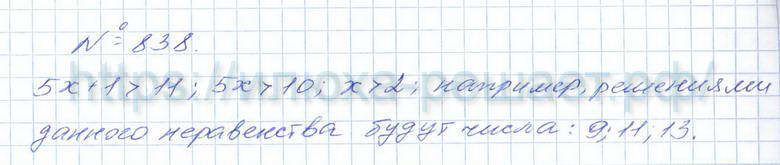 № 838.
5x+1>11; 5x>10; x>2; например, решениями
данного неравенства будут числа: 9; 11; 13.